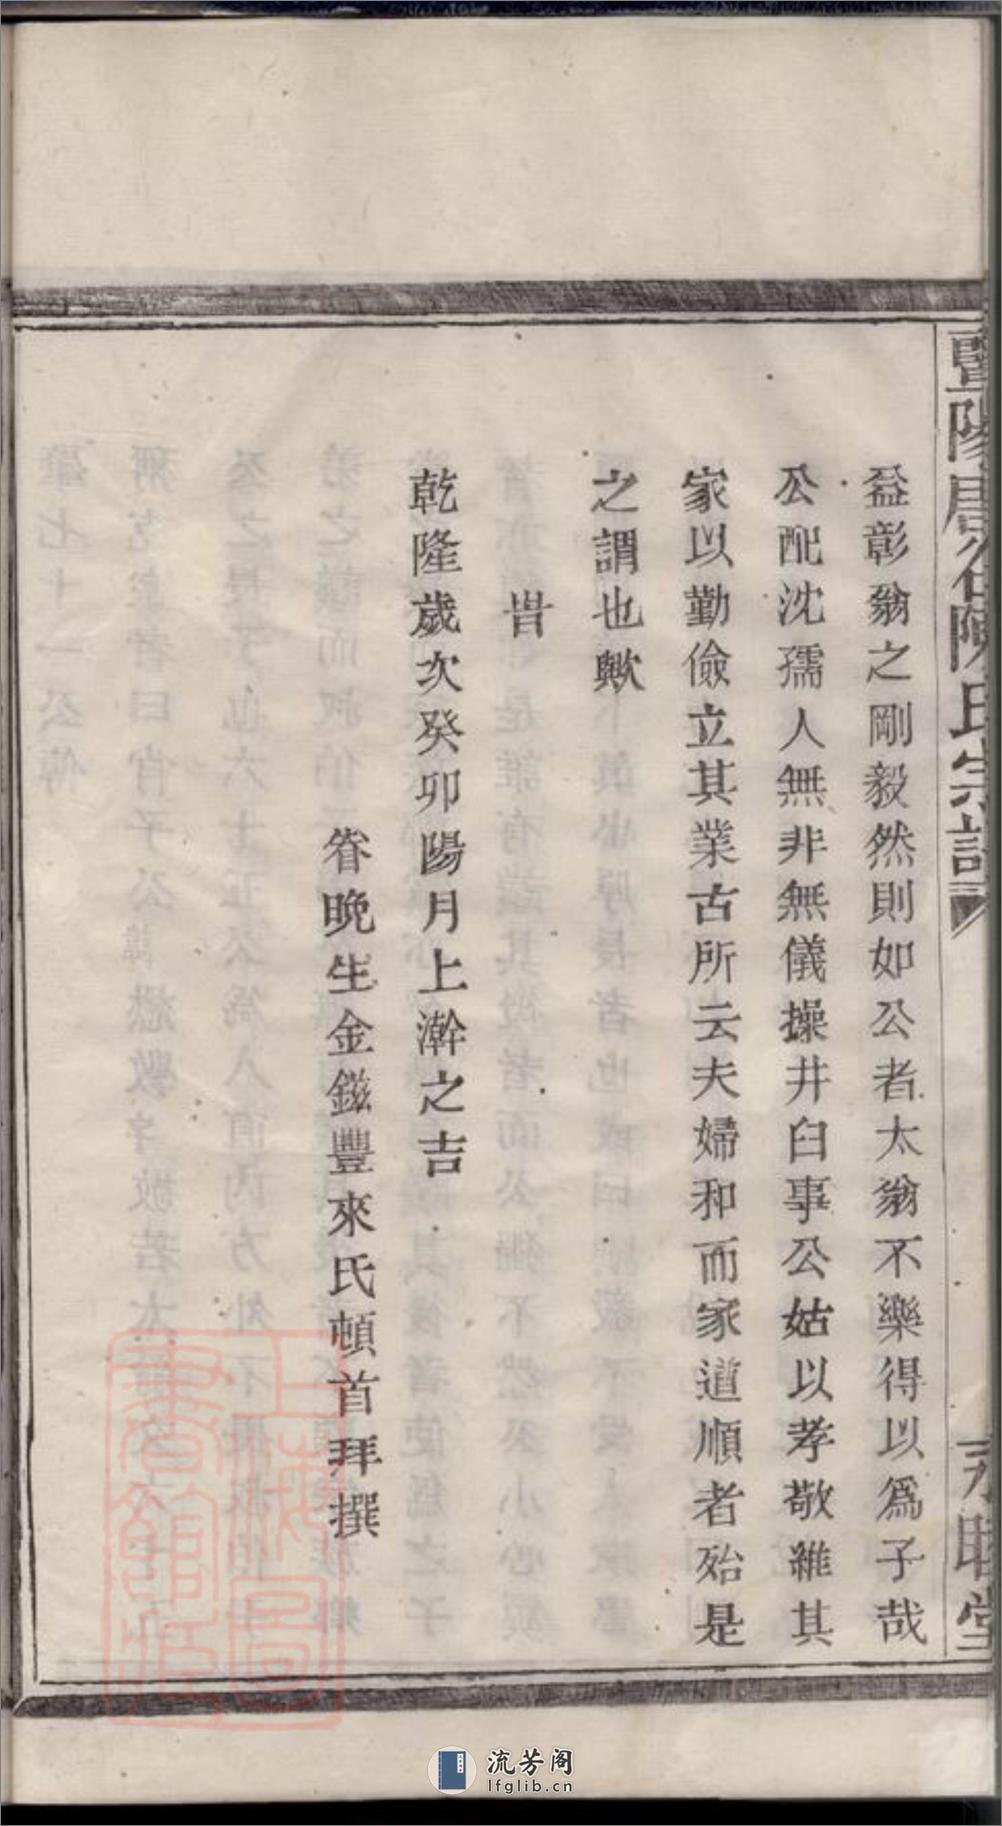 暨陽唐谷陳氏宗譜
永睦堂
益彰翁之剛毅然則如公者太翁不樂得以爲子哉
公配沈孺人無非無儀操井臼事公姑以孝敬維其
家以勤儉立其業古所云夫婦和而家道順者殆是
之謂也歟
旹
乾隆歲次癸卯陽月上澣之吉
眷晚生金鎡豐來氏頓首拜撰
上海圖書館藏
流芳阁
lfglib.cn